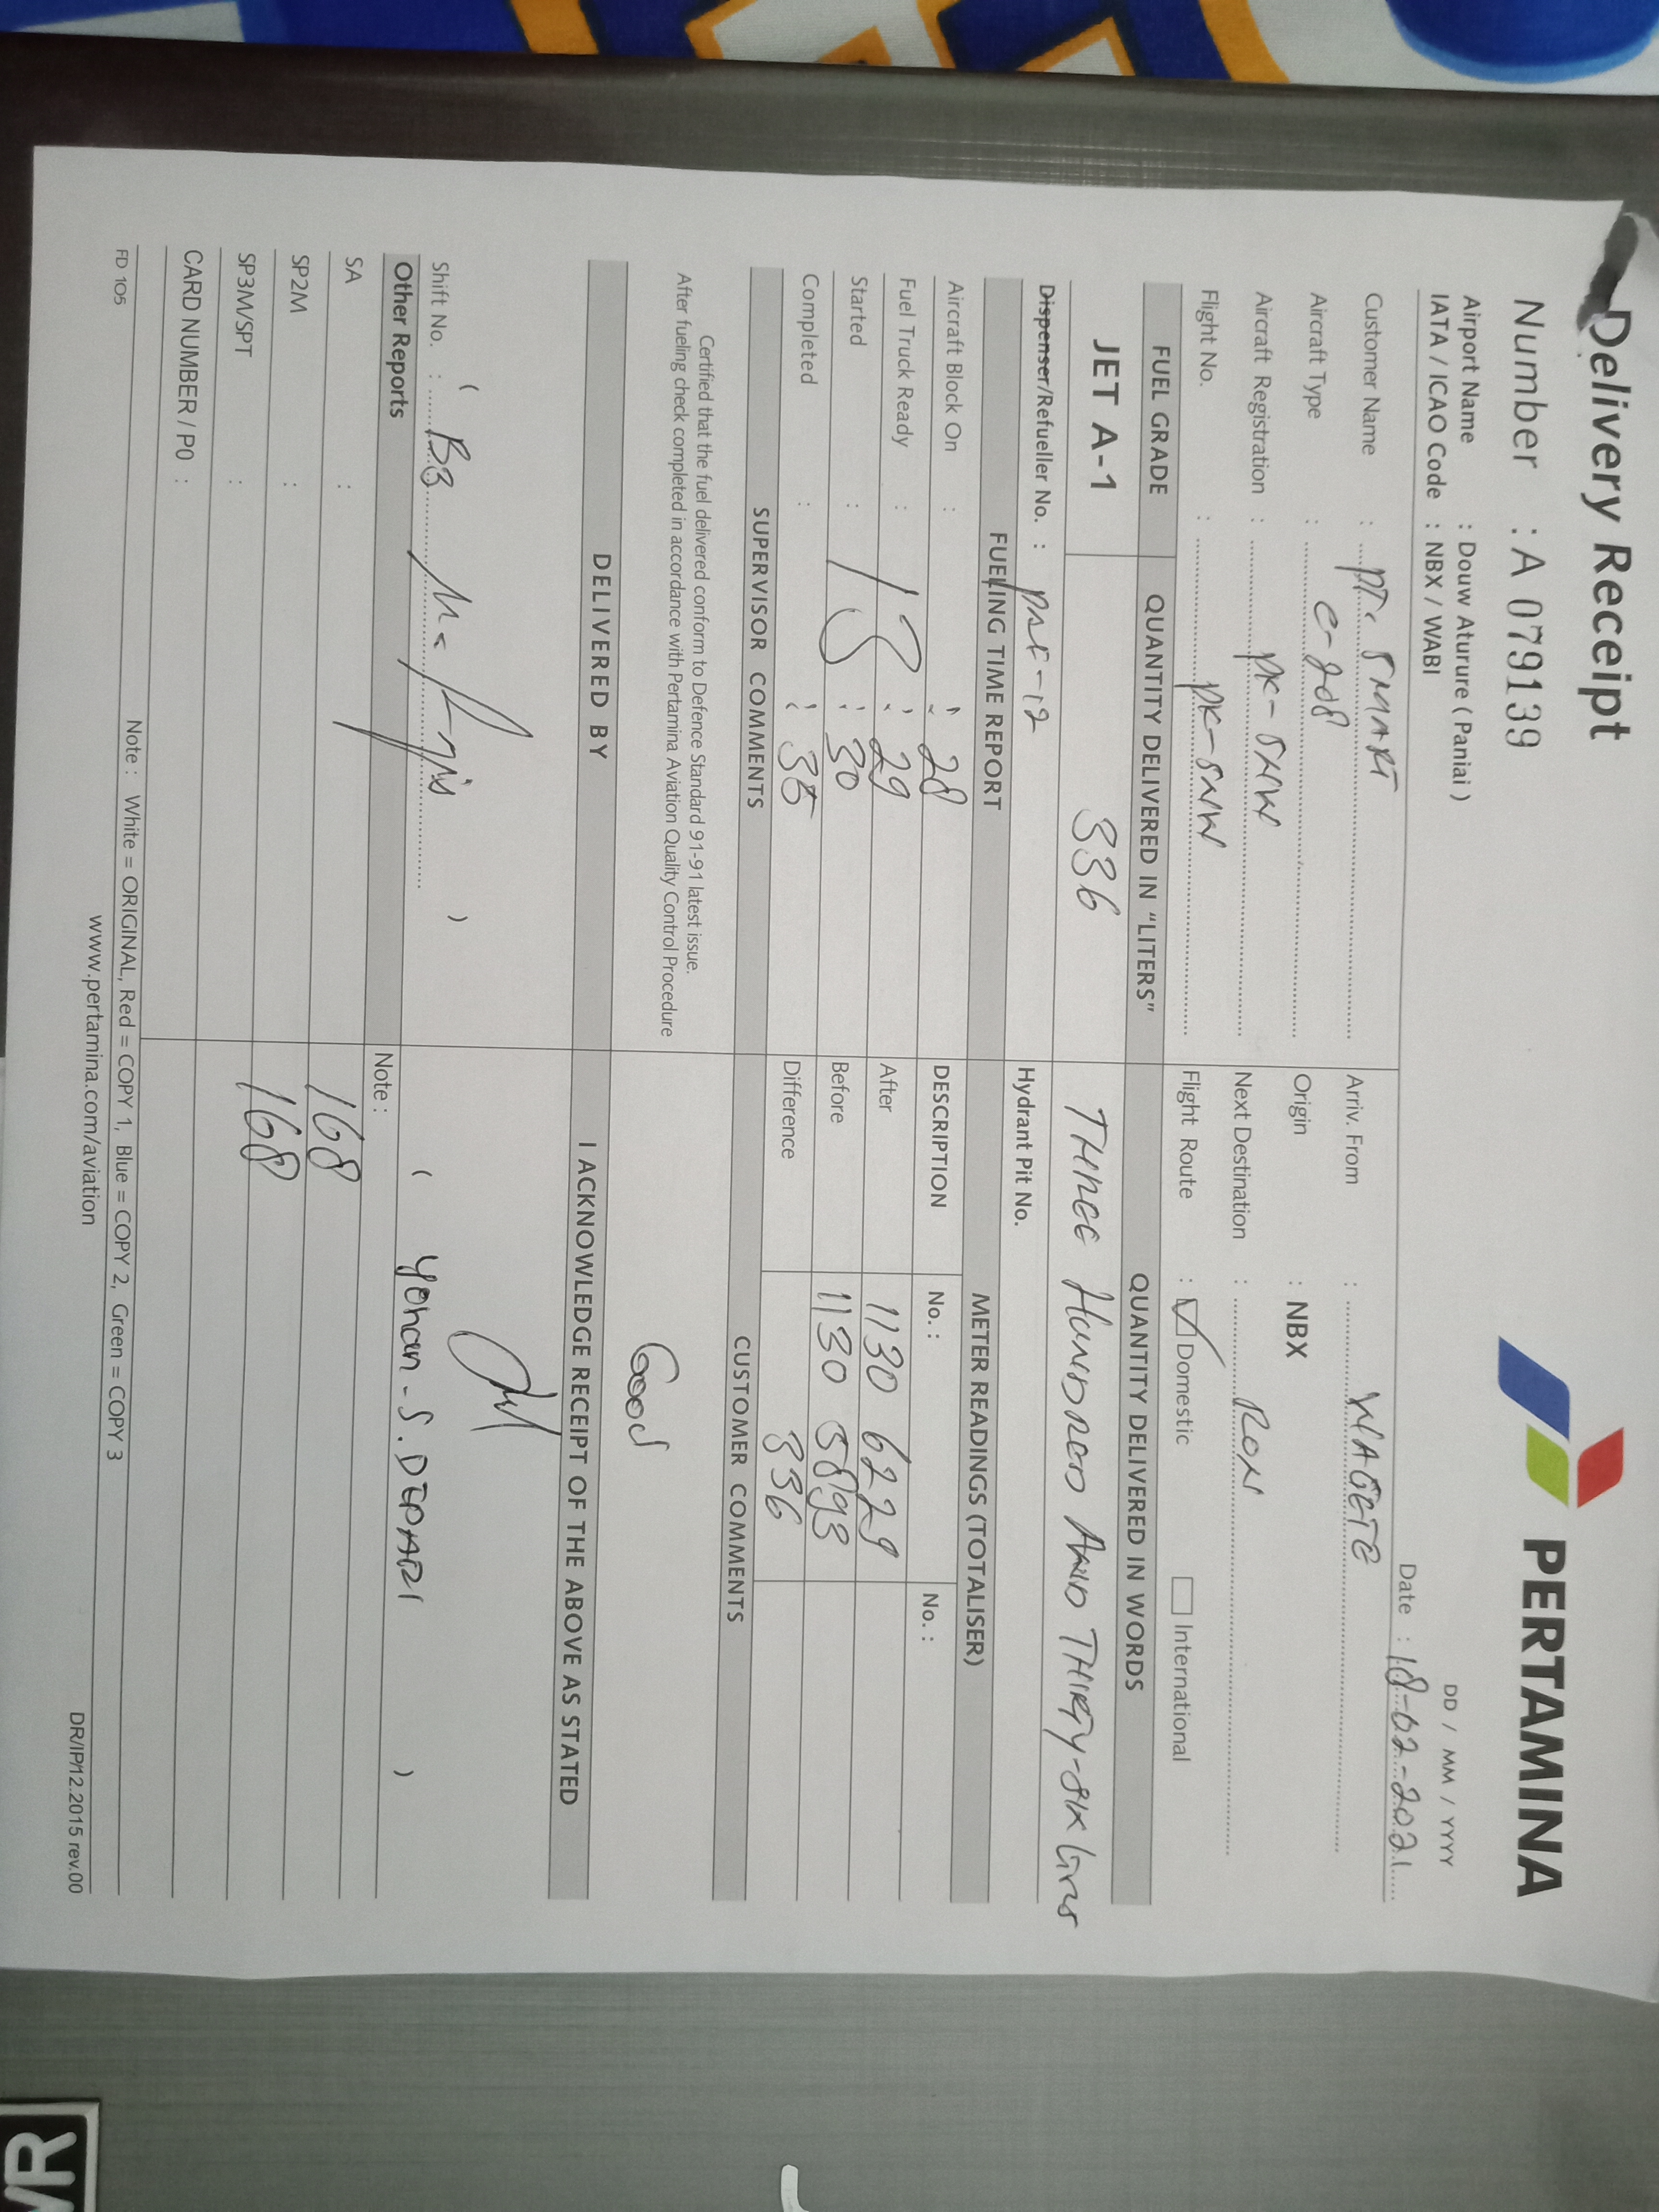 Delivery Receipt
PERTAMINA
Number : A 0791139
DD / MM / YYYY
Airport Name : Douw Aturure ( Paniai )
IATA / ICAO Code : NBX / WABI
Date : 18-02-2021
Customer Name : PT. SMART
Arriv. From : WAGETE
Aircraft Type : C-208
Origin : NBX
Aircraft Registration : PK-SNW
Next Destination : RON
Flight No. : PK-SNW
Flight Route : Domestic International
FUEL GRADE QUANTITY DELIVERED IN "LITERS" QUANTITY DELIVERED IN WORDS
JET A-1 336 THREE HUNDRED AND THIRTY-SIX
Dispenser/Refueller No. :
Hydrant Pit No.
FUELING TIME REPORT METER READINGS (TOTALISER)
Aircraft Block On : : 28
DESCRIPTION No. : No. :
Fuel Truck Ready : : 29
After 1130 6229
Started : : 30
Before 1130 5893
Completed : : 35
Difference 336
SUPERVISOR COMMENTS CUSTOMER COMMENTS
Certified that the fuel delivered conform to Defence Standard 91-91 latest issue.
After fueling check completed in accordance with Pertamina Aviation Quality Control Procedure
Good
DELIVERED BY I ACKNOWLEDGE RECEIPT OF THE ABOVE AS STATED
Shift No. : ( B3 )
( Yohan - S. DEPARI )
Other Reports Note :
SA :
168
SP2M :
168
SP3M/SPT :
CARD NUMBER / PO :
Note : White = ORIGINAL, Red = COPY 1, Blue = COPY 2, Green = COPY 3
FD 105
www.pertamina.com/aviation
DR/IP/12.2015 rev.00